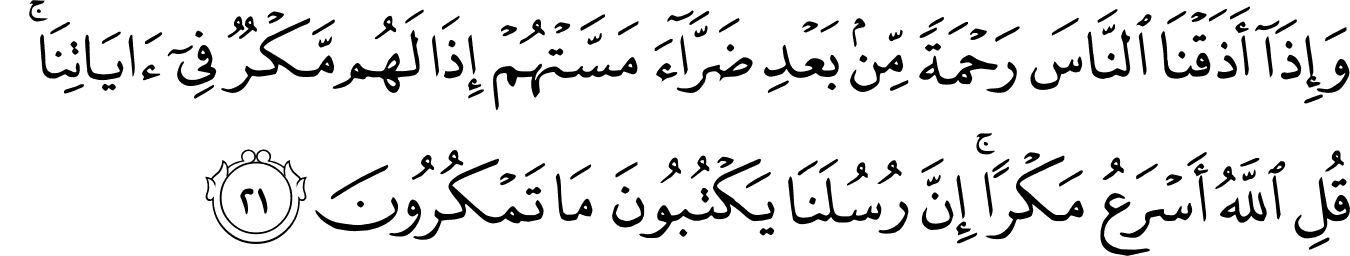 وَإِذَآ أَذَقْنَا ٱلنَّاسَ رَحْمَةً مِّنۢ بَعْدِ ضَرَّآءَ مَسَّتْهُمْ إِذَا لَهُم مَّكْرٌ فِىٓ ءَايَاتِنَا ۚ
قُلِ ٱللَّهُ أَسْرَعُ مَكْرًا ۚ إِنَّ رُسُلَنَا يَكْتُبُونَ مَا تَمْكُرُونَ ٢١